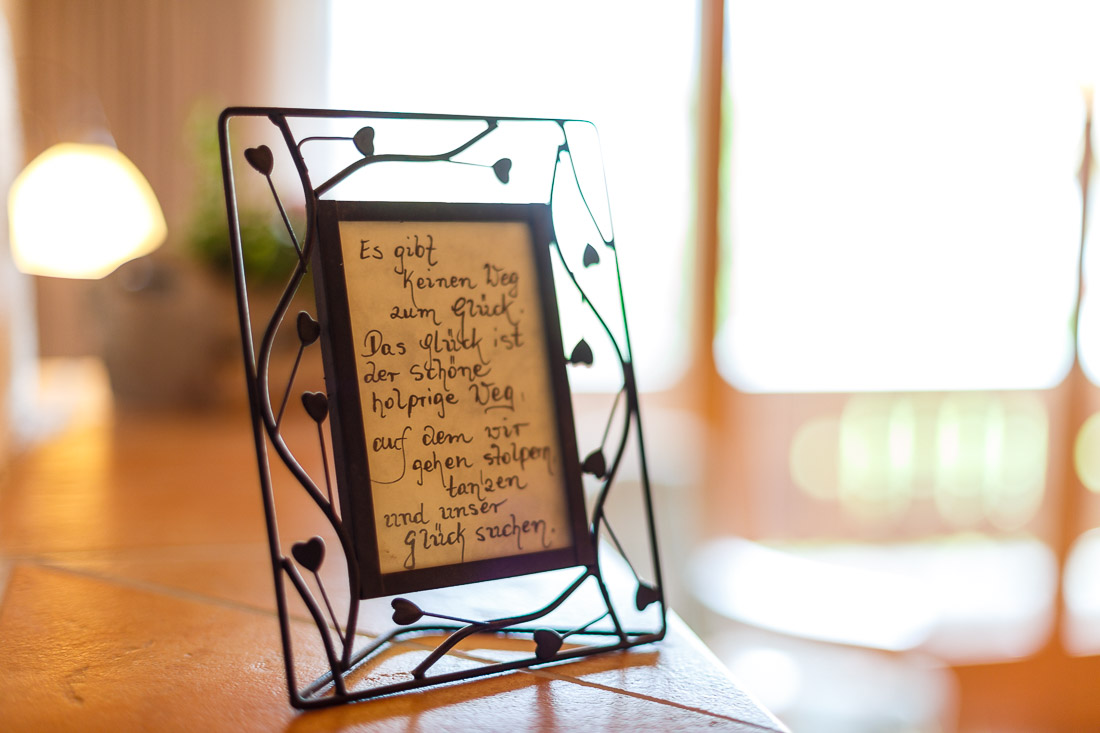 Es gibt
keinen Weg
zum Glück.
Das Glück ist
der schöne
holprige Weg,
auf dem wir
gehen stolpern
tanzen
und unser
Glück suchen.